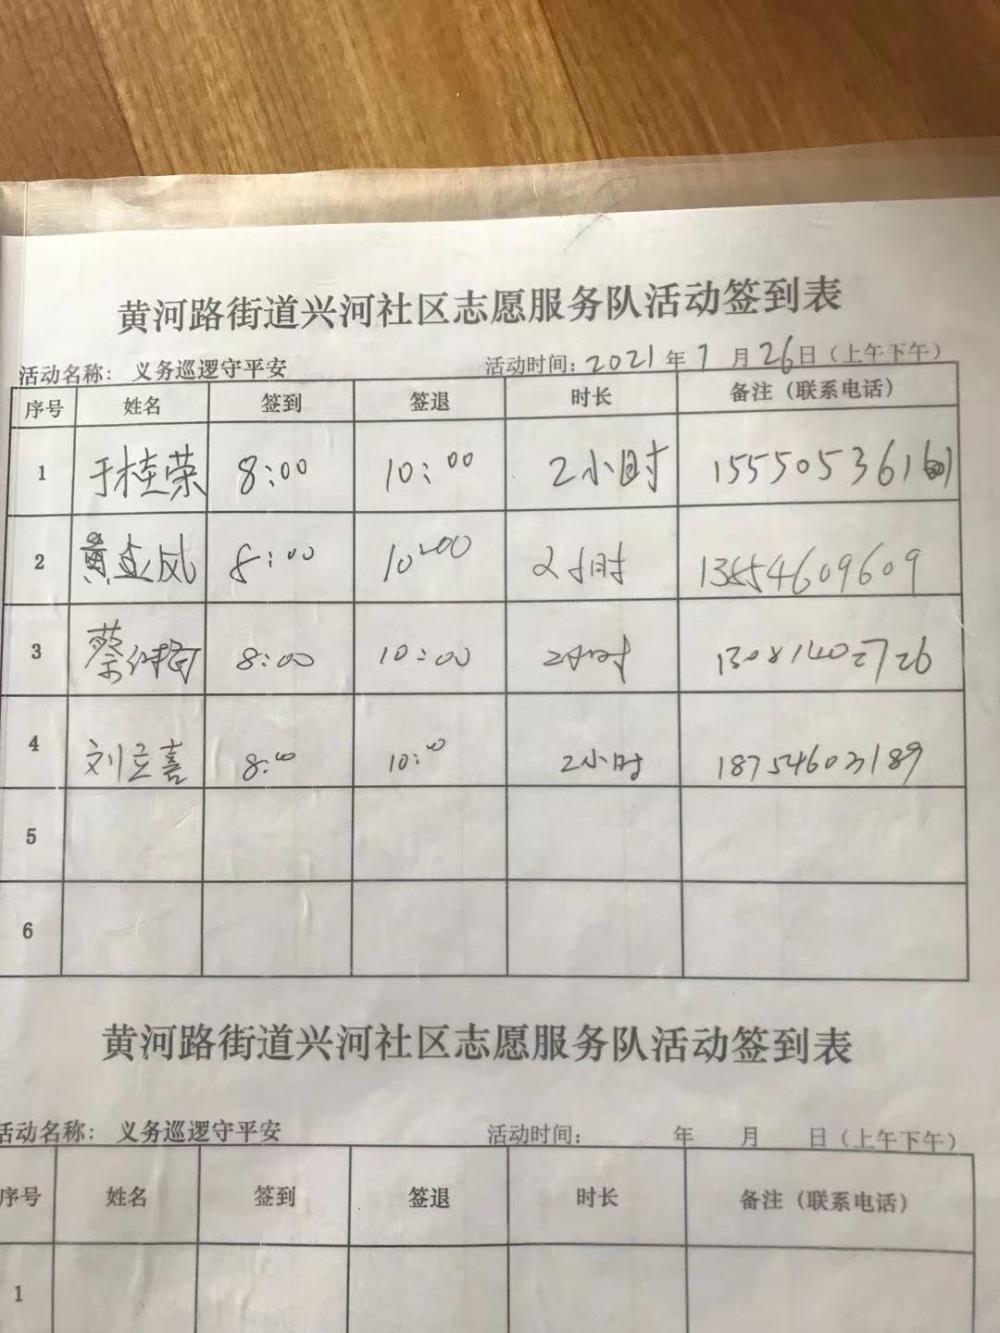 黄河路街道兴河社区志愿服务队活动签到表
活动名称： 义务巡逻守平安 活动时间：2021年7月26日（上午下午）
序号 姓名 签到 签退 时长 备注（联系电话）
1 于桂荣 8:00 10:00 2小时 155505361
2 黄 凤 8:00 10:00 2小时 13854609609
3 蔡 8:00 10:00 2小时 13081402726
4 刘立喜 8:00 10:00 2小时 18754603189
5
6
黄河路街道兴河社区志愿服务队活动签到表
活动名称： 义务巡逻守平安 活动时间： 年 月 日（上午下午）
序号 姓名 签到 签退 时长 备注（联系电话）
1